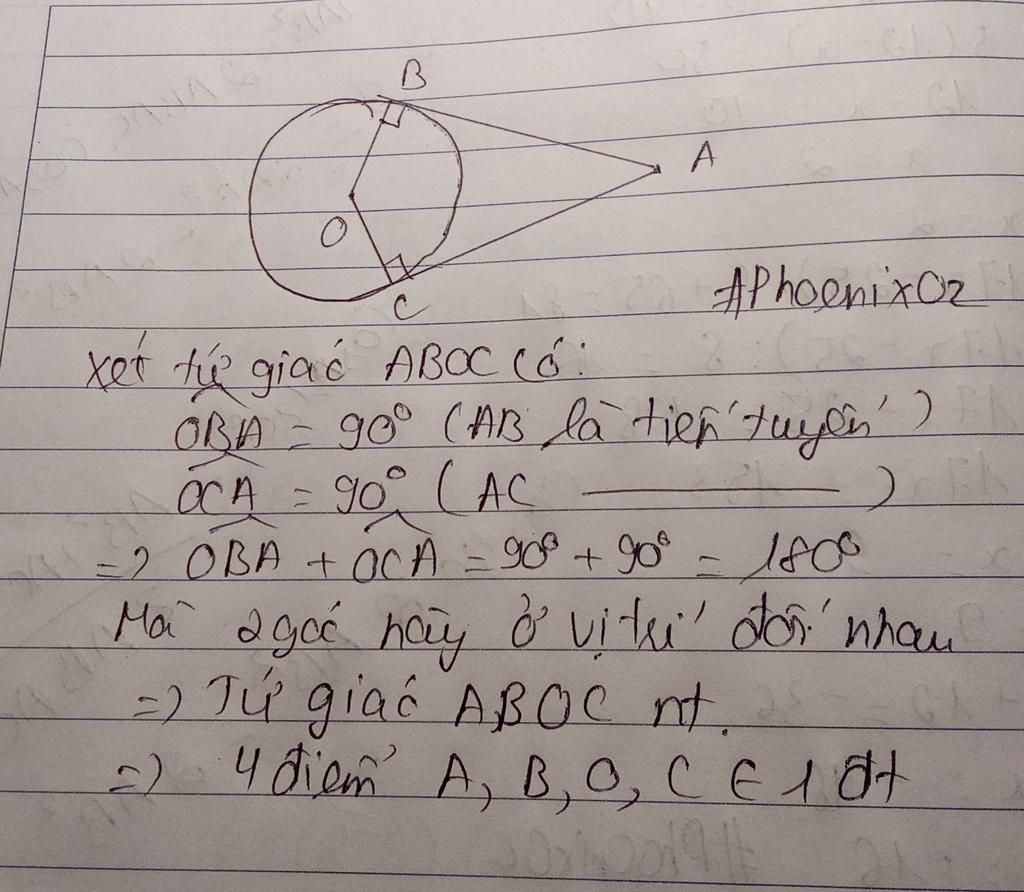 B
A
O
C
#PhoenixOz
Xét tứ giác ABOC có:
OBA = 90° (AB là tiếp tuyến)
OCA = 90° (AC ———)
=> OBA + OCA = 90° + 90° = 180°
Mà 2 góc này ở vị trí đối nhau
=> Tứ giác ABOC nt.
=> 4 điểm A, B, O, C ∈ 1 đt